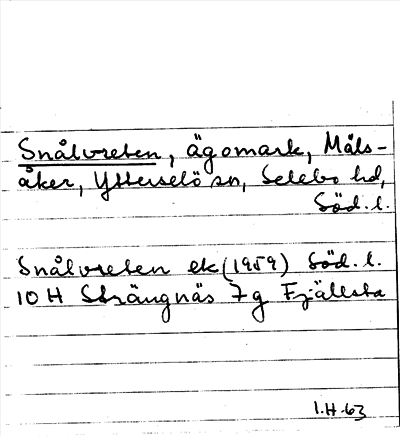 Snålvreten, ägomark, Måls-
åker, Ytterselö sn, Selebo hd,
Söd. l.
Snålvreten ek (1959) Söd. l.
10 H Strängnäs 7g Fjällsta
I.H.-63